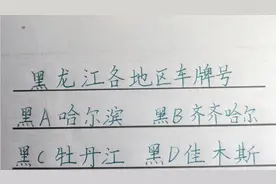 黑龙江各地区车牌号
黑A哈尔滨 黑B齐齐哈尔
黑C牡丹江 黑D佳木斯